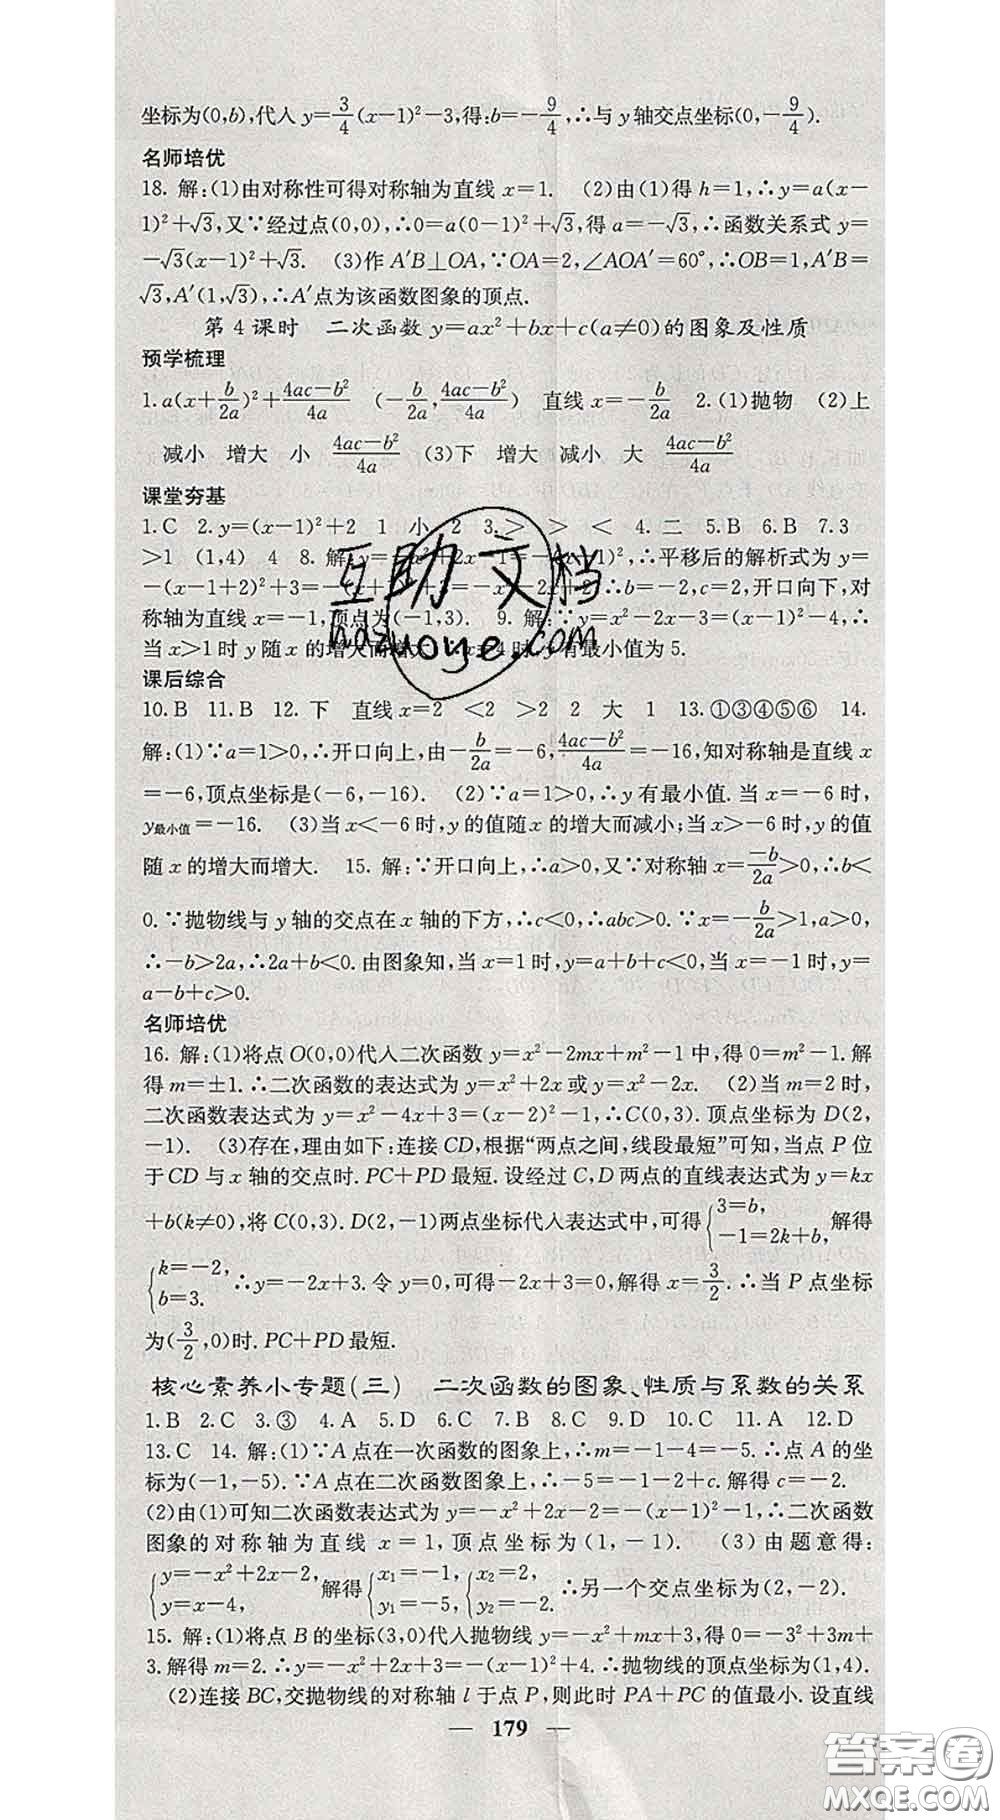 坐标为(0,b),代人 y=3/4(x-1)²-3,得:b=-9/4,∴与 y 轴交点坐标(0,-9/4).
名师培优
18. 解:(1)由对称性可得对称轴为直线 x=1. (2)由(1)得 h=1,∴y=a(x-
1)²+√3,又∵经过点(0,0),∴0=a(0-1)²+√3,得 a=-√3,∴函数关系式 y=
-√3(x-1)²+√3. (3)作 A′B⊥OA,∵OA=2,∠AOA′=60°,∴OB=1,A′B=
√3,A′(1,√3),∴A′点为该函数图象的顶点.
第 4 课时 二次函数 y=ax²+bx+c(a≠0)的图象及性质
预学梳理
1. a(x+b/2a)²+(4ac-b²)/4a (-b/2a,(4ac-b²)/4a) 直线 x=-b/2a 2. (1)抛物 (2)上
减小 增大 小 (4ac-b²)/4a (3)下 增大 减小 大 (4ac-b²)/4a
课堂夯基
1. C 2. y=(x-1)²+2 1 小 2 3. > > < 4. 二 5. B 6. B 7. 3
>1 (1,4) 4 8. 解:y=-x²+2x-1=-(x-1)²,∴平移后的解析式为 y=
-(x-1+2)²+3= ∴b=-2,c=2,开口向下,对
称轴为直线 x=-1,顶点为(-1,3). 9. 解:∵y=x²-2x-3=(x-1)²-4,∴
当 x>1 时 y 随 x 的增大而增大 ∴x=4 时 y 有最小值为 5.
课后综合
10. B 11. B 12. 下 直线 x=2 <2 >2 2 大 1 13. ①③④⑤⑥ 14.
解:(1)∵a=1>0,∴开口向上,由-b/2a=-6,(4ac-b²)/4a=-16,知对称轴是直线 x
=-6,顶点坐标是(-6,-16). (2)∵a=1>0,∴y 有最小值. 当 x=-6 时,
y最小值=-16. (3)当 x<-6 时,y 的值随 x 的增大而减小;当 x>-6 时,y 的值
随 x 的增大而增大. 15. 解:∵开口向上,∴a>0,又∵对称轴 x=-b/2a>0,∴b<
0. ∵抛物线与 y 轴的交点在 x 轴的下方,∴c<0,∴abc>0. ∵x=-b/2a>1,a>0,
∴-b>2a,∴2a+b<0. 由图象知,当 x=1 时,y=a+b+c<0,当 x=-1 时,y=
a-b+c>0.
名师培优
16. 解:(1)将点 O(0,0)代人二次函数 y=x²-2mx+m²-1 中,得 0=m²-1. 解
得 m=±1. ∴二次函数的表达式为 y=x²+2x 或 y=x²-2x. (2)当 m=2 时,
二次函数表达式为 y=x²-4x+3=(x-2)²-1,∴C(0,3). 顶点坐标为 D(2,
-1). (3)存在,理由如下:连接 CD,根据“两点之间,线段最短”可知,当点 P 位
于 CD 与 x 轴的交点时. PC+PD 最短. 设经过 C,D 两点的直线表达式为 y=kx
+b(k≠0),将 C(0,3). D(2,-1)两点坐标代人表达式中,可得{3=b, -1=2k+b, 解得
{k=-2, b=3. ∴y=-2x+3. 令 y=0,可得-2x+3=0,解得 x=3/2. ∴当 P 点坐标
为(3/2,0)时. PC+PD 最短.
核心素养小专题(三) 二次函数的图象、性质与系数的关系
1. B 2. C 3. ③ 4. A 5. D 6. C 7. B 8. C 9. D 10. C 11. A 12. D
13. C 14. 解:(1)∵A 点在一次函数的图象上,∴m=-1-4=-5. ∴点 A 的坐
标为(-1,-5). ∵A 点在二次函数图象上,∴-5=-1-2+c. 解得 c=-2.
(2)由(1)可知二次函数表达式为 y=-x²+2x-2=-(x-1)²-1,∴二次函数
图象的对称轴为直线 x=1,顶点坐标为(1,-1). (3)由题意得:
{y=-x²+2x-2, y=x-4, 解得{x₁=-1, y₁=-5, {x₂=2, y₂=-2. ∴另一个交点坐标为(2,-2).
15. 解:(1)将点 B 的坐标(3,0)代人抛物线 y=-x²+mx+3,得 0=-3²+3m+
3. 解得 m=2. ∴y=-x²+2x+3=-(x-1)²+4. ∴抛物线的顶点坐标为(1,4).
(2)连接 BC,交抛物线的对称轴 l 于点 P,则此时 PA+PC 的值最小. 设直线
— 179 —
互助文档
hdzuoye.com
答案圈
MXQE.COM